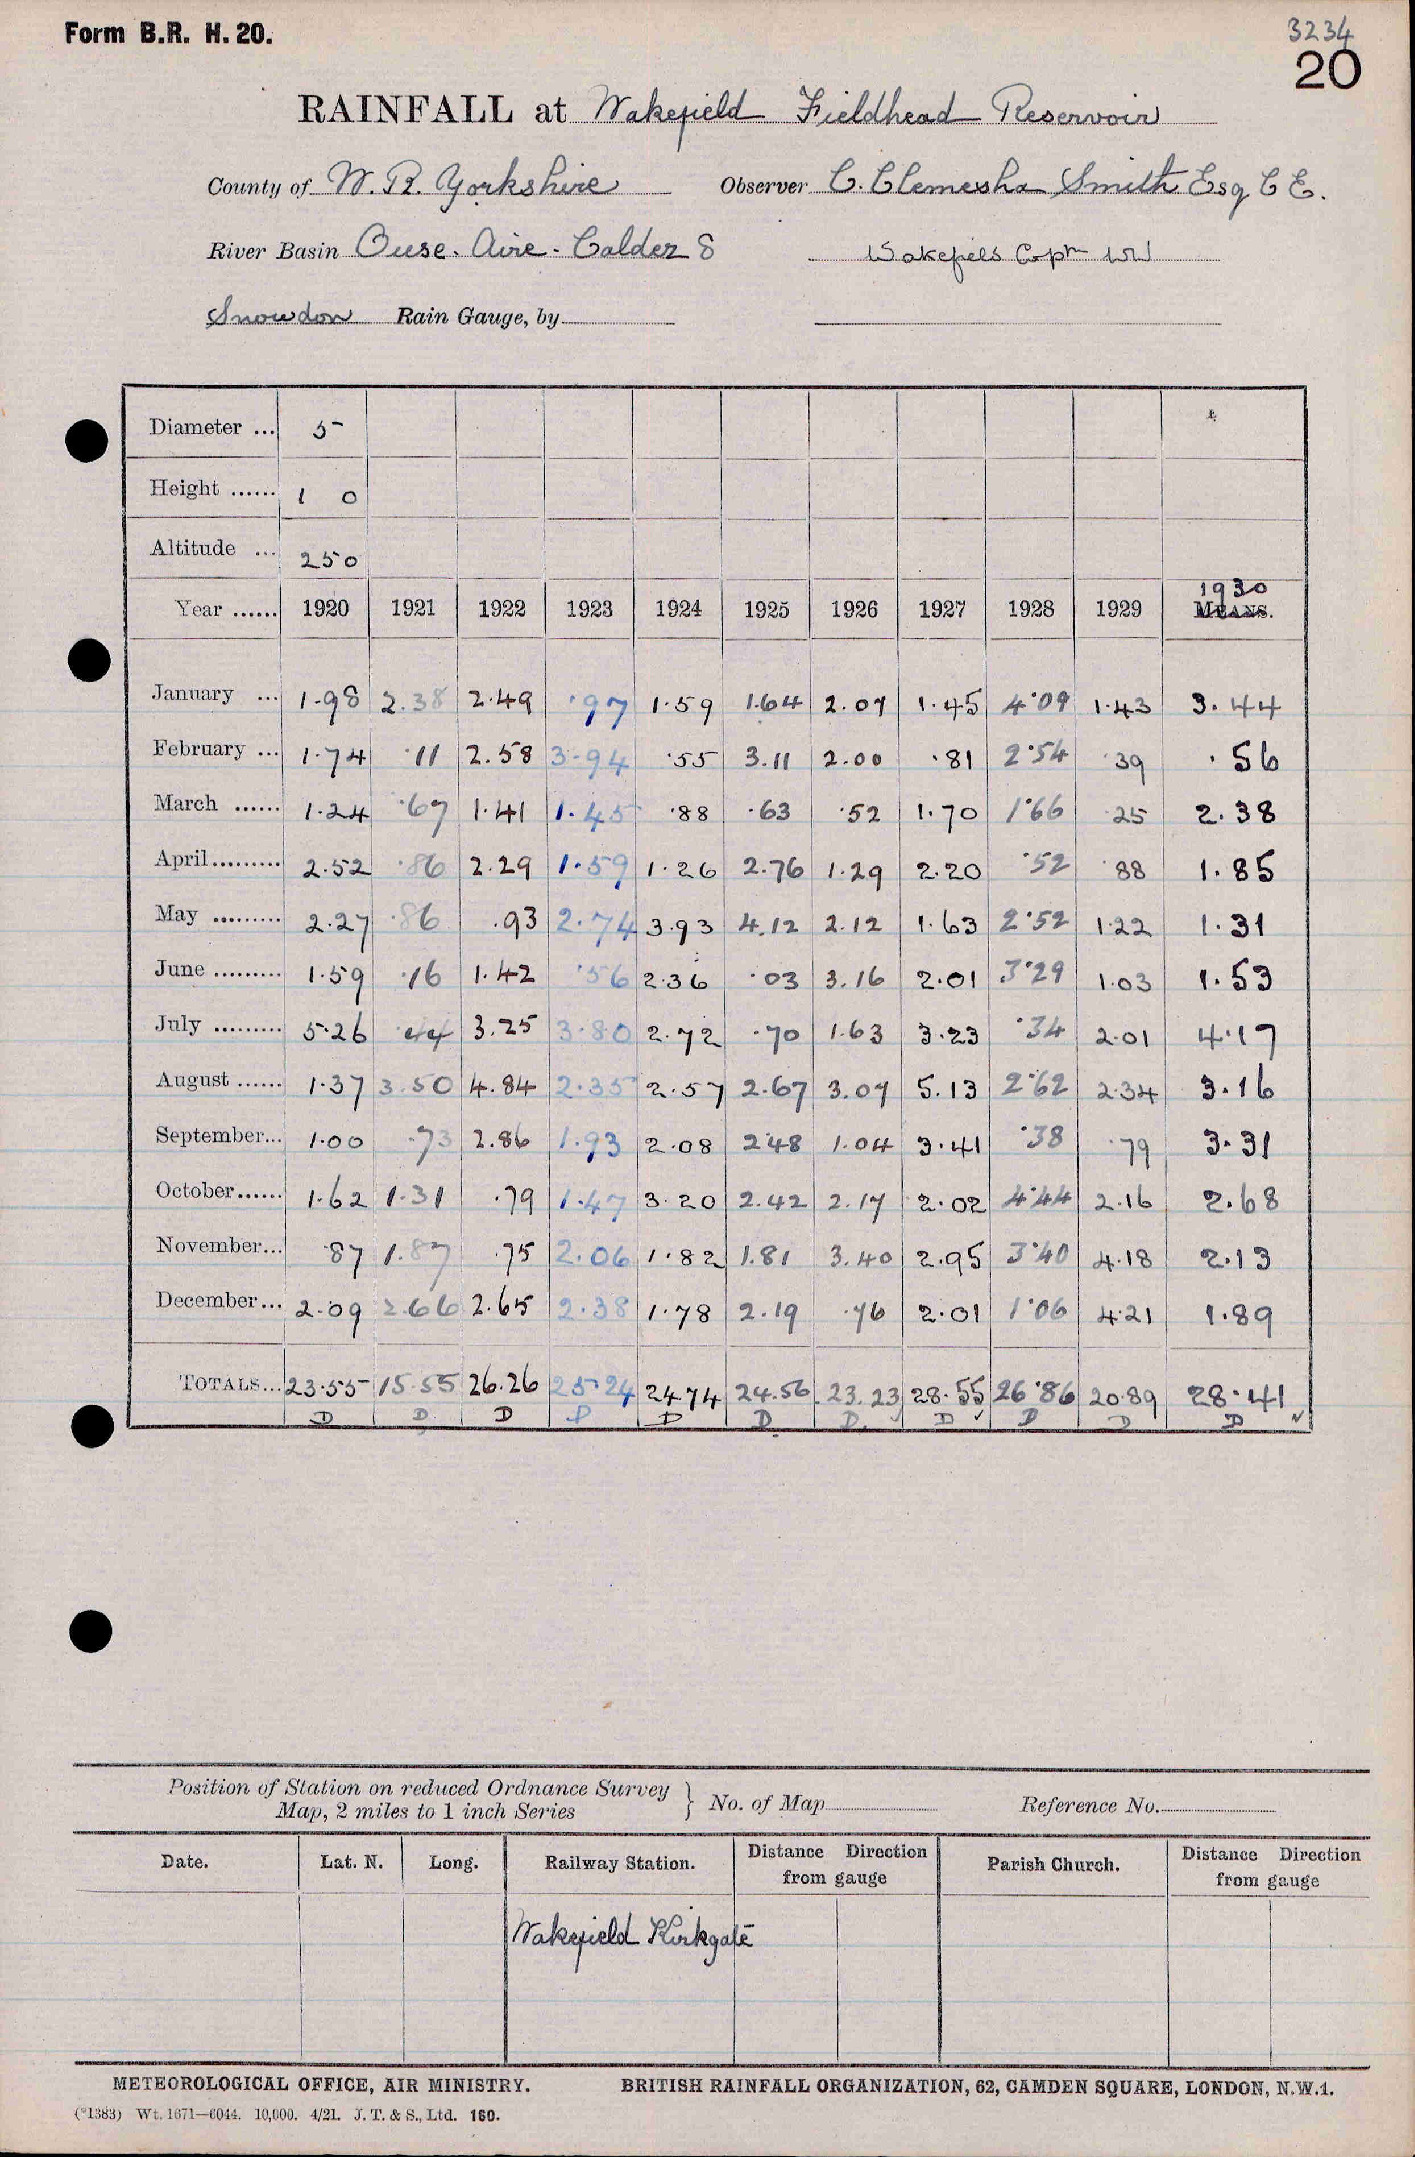 Form B.R. H. 20.
3234
20
RAINFALL at Wakefield Fieldhead Reservoir
County of W. R. Yorkshire Observer C. Clemesha Smith Esq C E.
River Basin Ouse. Aire. Calder 8 Wakefield Corptn WW
Snowdon Rain Gauge, by
Diameter ... 5
Height ...... 1 0
Altitude ... 250
1930
Year ...... 1920 1921 1922 1923 1924 1925 1926 1927 1928 1929 MEANS.
January ... 1.98 2.38 2.49 .97 1.59 1.64 2.07 1.45 4.09 1.43 3.44
February ... 1.74 .11 2.58 3.94 .55 3.11 2.00 .81 2.54 .39 .56
March ...... 1.24 .67 1.41 1.45 .88 .63 .52 1.70 1.66 .25 2.38
April ......... 2.52 .86 2.29 1.59 1.26 2.76 1.29 2.20 .52 .88 1.85
May ......... 2.27 .86 .93 2.74 3.93 4.12 2.12 1.63 2.52 1.22 1.31
June ......... 1.59 .16 1.42 .56 2.36 .03 3.16 2.01 3.29 1.03 1.53
July ......... 5.26 .44 3.25 3.80 2.72 .70 1.63 3.23 .34 2.01 4.17
August ...... 1.37 3.50 4.84 2.35 2.57 2.67 3.07 5.13 2.62 2.34 3.16
September... 1.00 .73 2.86 1.93 2.08 2.48 1.04 3.41 .38 .79 3.31
October...... 1.62 1.31 .79 1.47 3.20 2.42 2.17 2.02 4.44 2.16 2.68
November... .87 1.87 .75 2.06 1.82 1.81 3.40 2.95 3.40 4.18 2.13
December... 2.09 2.66 2.65 2.38 1.78 2.19 .76 2.01 1.06 4.21 1.89
TOTALS... 23.55 15.55 26.26 25.24 24.74 24.56 23.23 28.55 26.86 20.89 28.41
D D D D D D D D D D D
Position of Station on reduced Ordnance Survey
Map, 2 miles to 1 inch Series } No. of Map Reference No.
Date. Lat. N. Long. Railway Station. Distance Direction from gauge Parish Church. Distance Direction from gauge
Wakefield Kirkgate
METEOROLOGICAL OFFICE, AIR MINISTRY. BRITISH RAINFALL ORGANIZATION, 62, CAMDEN SQUARE, LONDON, N.W.1.
(*1383) Wt. 1671—6044. 10,000. 4/21. J. T. & S., Ltd. 160.